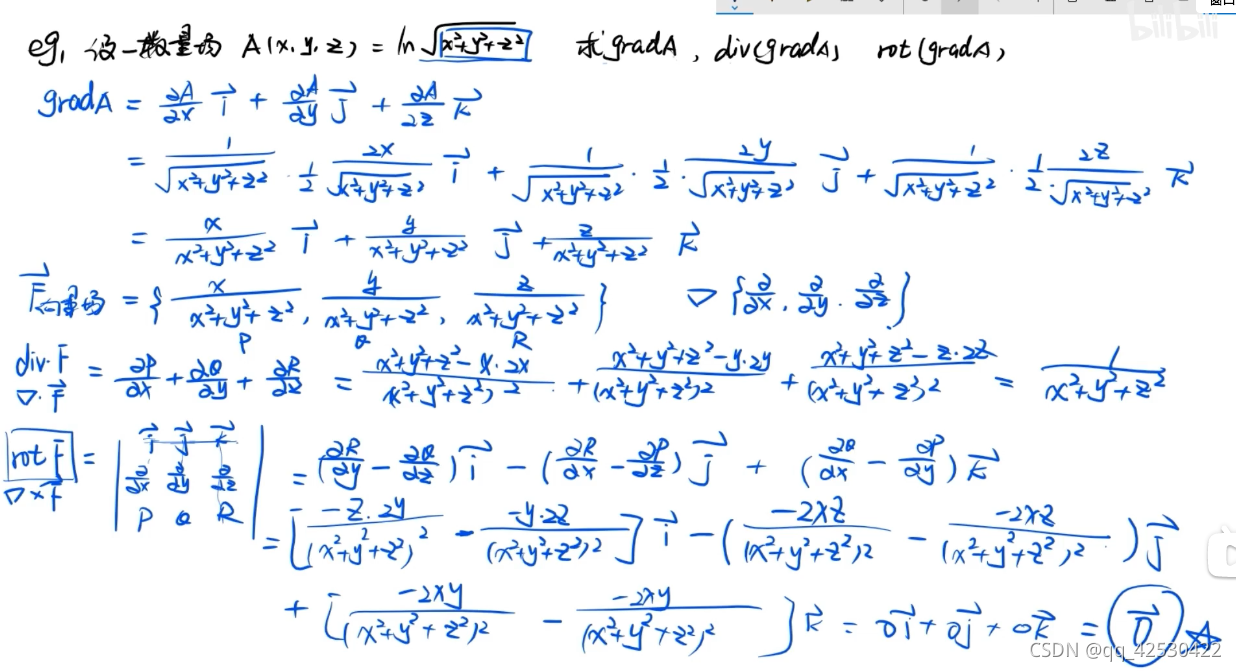 窗口
bilibili
eg, 设一数量场 A(x,y,z) = ln√(x²+y²+z²) 求 gradA, div(gradA) rot(gradA)
gradA = ∂A/∂x i⃗ + ∂A/∂y j⃗ + ∂A/∂z k⃗
= 1/√(x²+y²+z²) · 1/2 2x/√(x²+y²+z²) i⃗ + 1/√(x²+y²+z²) · 1/2 · 2y/√(x²+y²+z²) j⃗ + 1/√(x²+y²+z²) · 1/2 · 2z/√(x²+y²+z²) k⃗
= x/(x²+y²+z²) i⃗ + y/(x²+y²+z²) j⃗ + z/(x²+y²+z²) k⃗
F⃗向量场 = { x/(x²+y²+z²), y/(x²+y²+z²), z/(x²+y²+z²) } ▽ {∂/∂x, ∂/∂y, ∂/∂z}
P Q R
div·F⃗ = ∂P/∂x + ∂Q/∂y + ∂R/∂z = (x²+y²+z²-x·2x)/(x²+y²+z²)² + (x²+y²+z²-y·2y)/(x²+y²+z²)² + (x²+y²+z²-z·2z)/(x²+y²+z²)² = 1/(x²+y²+z²)
▽·F⃗
rot F⃗ = | i⃗ j⃗ k⃗ | = (∂R/∂y - ∂Q/∂z) i⃗ - (∂R/∂x - ∂P/∂z) j⃗ + (∂Q/∂x - ∂P/∂y) k⃗
▽×F⃗ | ∂/∂x ∂/∂y ∂/∂z |
| P Q R |
= [-z·2y/(x²+y²+z²)² - -y·2z/(x²+y²+z²)²] i⃗ - (-2xz/(x²+y²+z²)² - -2xz/(x²+y²+z²)²) j⃗
+ [-2xy/(x²+y²+z²)² - -2xy/(x²+y²+z²)²] k⃗ = 0i⃗ + 0j⃗ + 0k⃗ = 0⃗
CSDN @qq_42530422